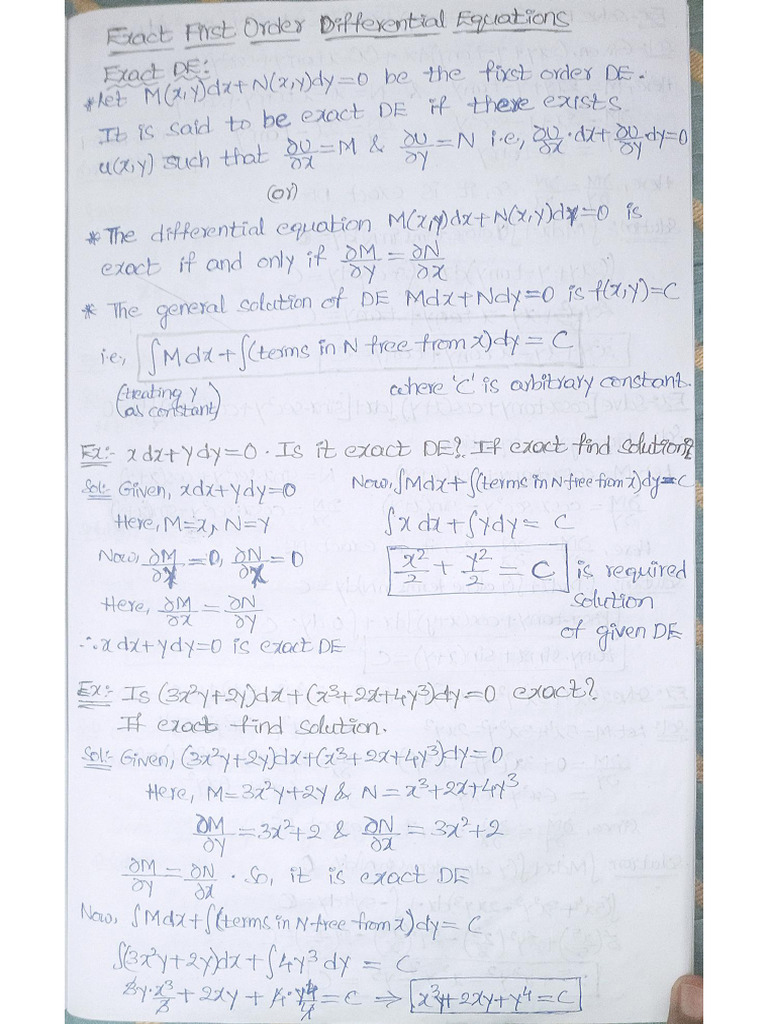 Exact First Order Differential Equations
Exact DE:
*Let M(x,y)dx+N(x,y)dy=0 be the first order DE.
It is said to be exact DE if there exists
u(x,y) such that ∂U/∂x=M & ∂U/∂y=N i.e, ∂U/∂x·dx+∂U/∂y·dy=0
(or)
*The differential equation M(x,y)dx+N(x,y)dy=0 is
exact if and only if ∂M/∂y=∂N/∂x
* The general solution of DE Mdx+Ndy=0 is f(x,y)=C
i.e, ∫Mdx+∫(terms in N free from x)dy=C
(treating y as constant) where 'C' is arbitrary constant.
Ex:- xdx+ydy=0. Is it exact DE? If exact find solution?
Sol:- Given, xdx+ydy=0
Here, M=x, N=y
Now, ∂M/∂y=0, ∂N/∂x=0
Here, ∂M/∂x=∂N/∂y
∴xdx+ydy=0 is exact DE
Now, ∫Mdx+∫(terms in N free from x)dy=C
∫xdx+∫ydy=C
x²/2+y²/2=C is required
solution
of given DE
Ex:- Is (3x²y+2y)dx+(x³+2x+4y³)dy=0 exact?
If exact find solution.
Sol:- Given, (3x²y+2y)dx+(x³+2x+4y³)dy=0
Here, M=3x²y+2y & N=x³+2x+4y³
∂M/∂y=3x²+2 & ∂N/∂x=3x²+2
∂M/∂y=∂N/∂x. So, it is exact DE
Now, ∫Mdx+∫(terms in N free from x)dy=C
∫(3x²y+2y)dx+∫4y³dy=C
3y·x³/3+2xy+4·y⁴/4=C ⇒ x³y+2xy+y⁴=C